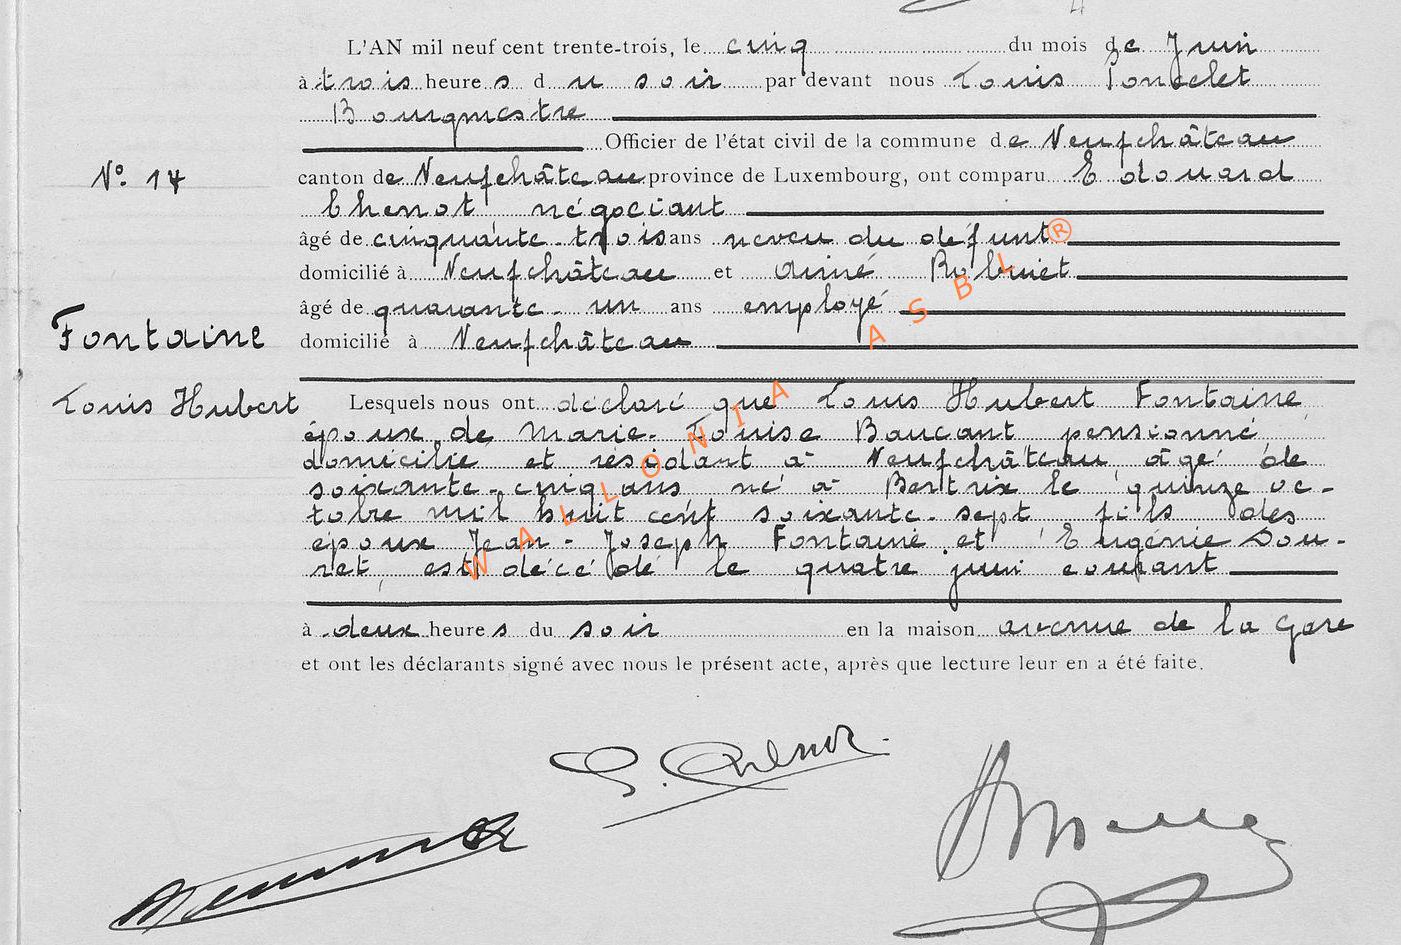 L'AN mil neuf cent trente-trois, le cinq du mois de Juin
à trois heures du soir par devant nous Louis Poncelet
Bourgmestre
Officier de l'état civil de la commune de Neufchâteau
N° 14
canton de Neufchâteau province de Luxembourg, ont comparu Edouard
Chenot négociant
âgé de cinquante-trois ans neveu du défunt
domicilié à Neufchâteau et Aimé
âgé de quarante-un ans employé
Fontaine
domicilié à Neufchâteau
Louis Hubert
Lesquels nous ont déclaré que Louis Hubert Fontaine
époux de Marie-Louise Baucant pensionné
domicilié et résidant à Neufchâteau, âgé de
soixante-cinq ans, né à Bertrix le quinze oc-
tobre mil huit cent soixante-sept fils des
époux Jean-Joseph Fontaine et Eugénie Dou-
ret, est décédé le quatre juin courant
à deux heures du soir en la maison avenue de la Gare
et ont les déclarants signé avec nous le présent acte, après que lecture leur en a été faite.
E. Chenot
WALLONIA ASBL ®